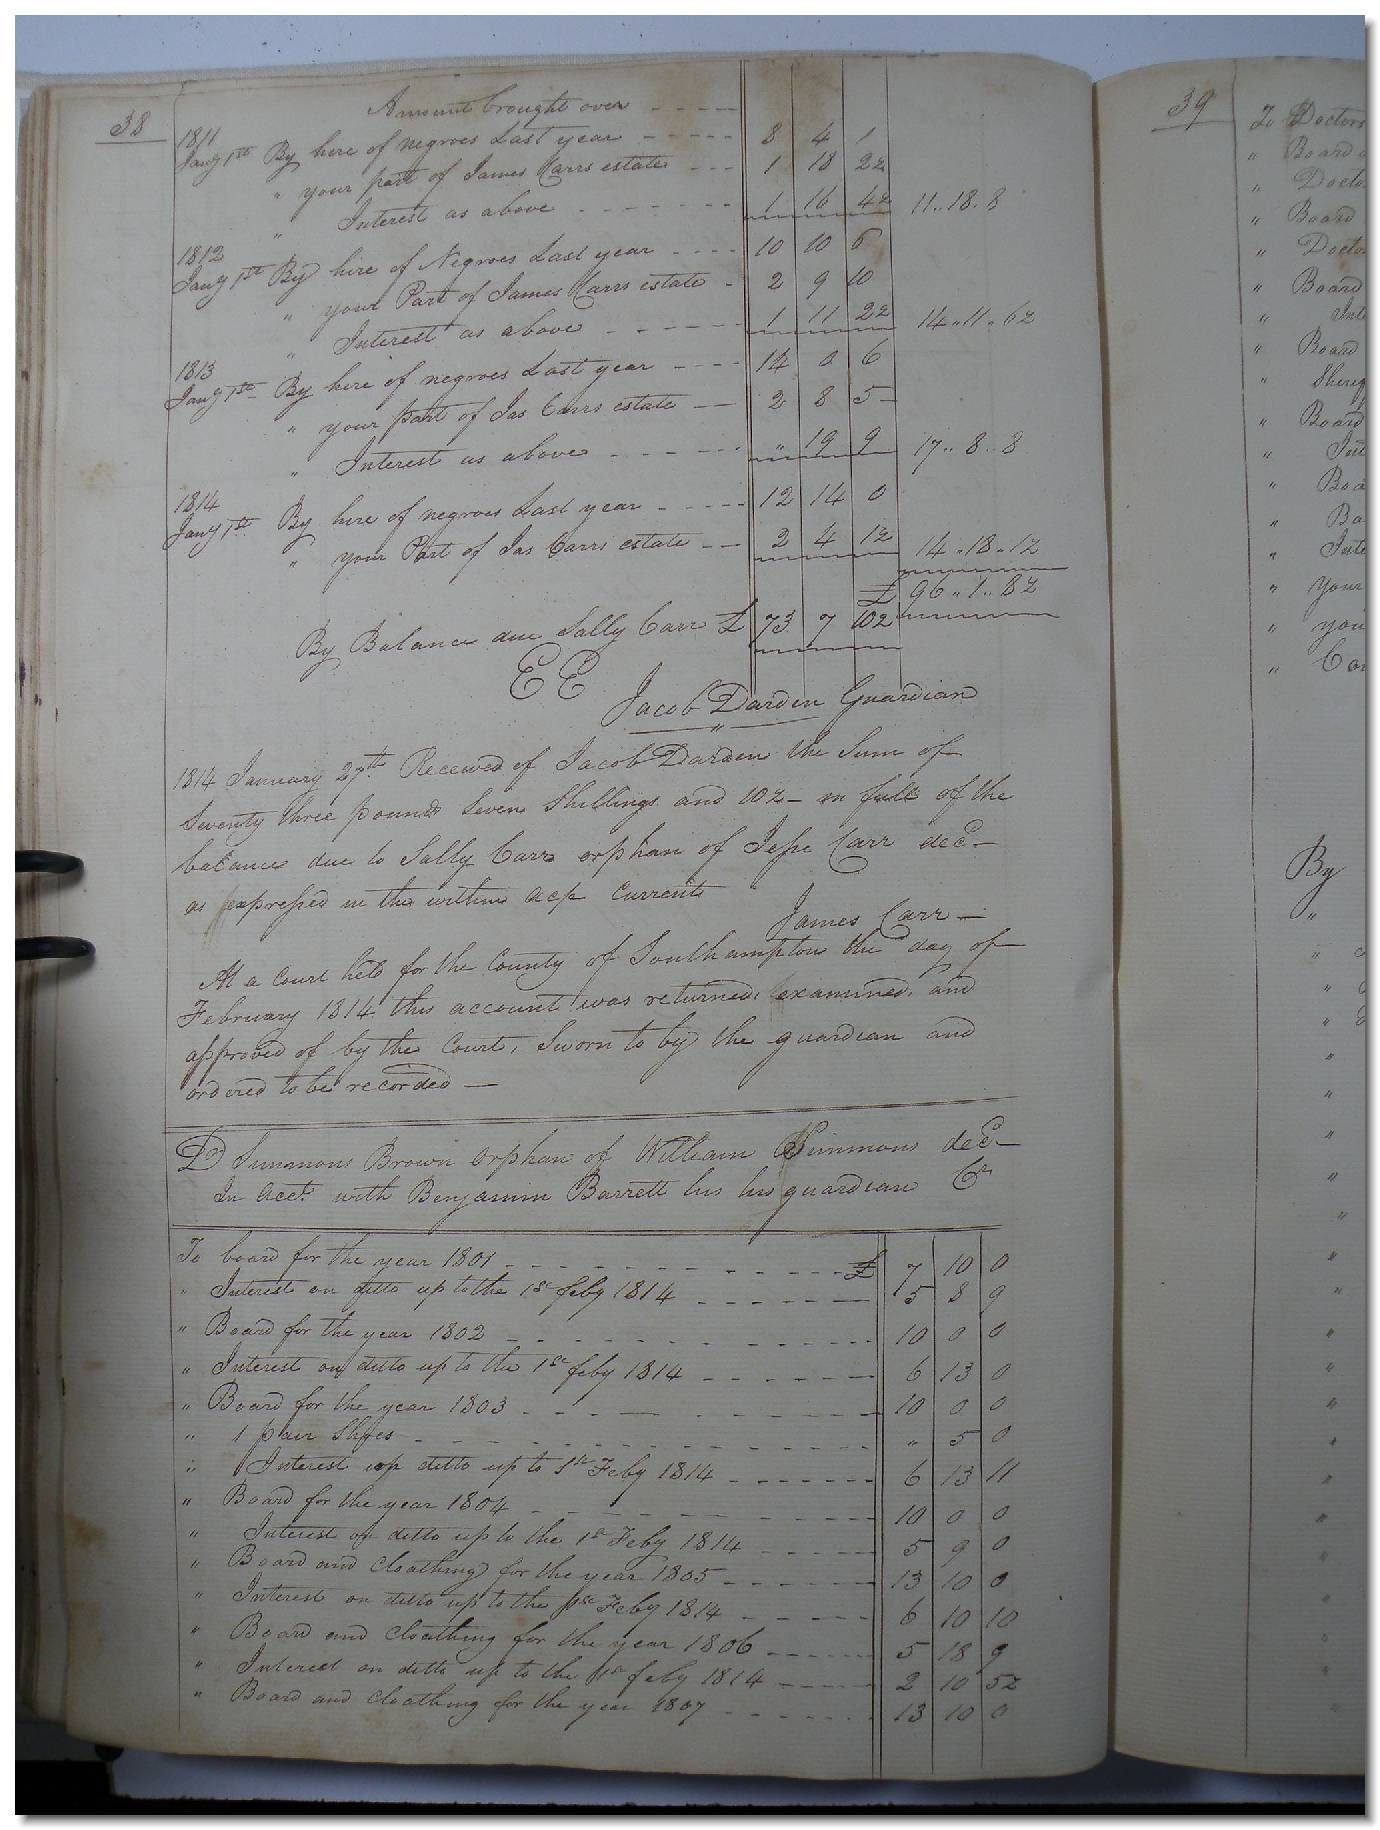 38
Amount brought over
1811
Jany 1st By hire of negroes Last year 8 4 1
" your part of James Carrs estate 1 18 2½
" Interest as above 1 16 4½ 11..18..8
1812
Jany 1st By hire of Negroes Last year 10 10 6
" your Part of James Carrs estate 2 9 10
" Interest as above 1 11 2½ 14..11..6½
1813
Jany 1st By hire of negroes Last year 14 0 6
" your part of Jas Carrs estate 2 8 5
" Interest as above " 19 9 17..8..8
1814
Jany 1st By hire of negroes Last year 12 14 0
" your Part of Jas Carrs estate 2 4 1½ 14..18..1½
£ 96..1..8½
By Balance due Sally Carr £ 73 7 10½
EE
Jacob Darden Guardian
1814 January 27th Received of Jacob Darden the Sum of
Seventy three pounds Seven Shillings and 10½ in full of the
balance due to Sally Carr orphan of Jesse Carr decd
as expressed in the within acp Current
James Carr
At a Court held for the County of Southampton the day of
February 1814 this account was returned, examined, and
approved of by the Court, Sworn to by the guardian and
ordered to be recorded
Dr Simmons Brown orphan of William Simmons decd
In acct. with Benjamin Barrett his his guardian Cr
To board for the year 1801 £ 7 10 0
" Interest on ditto up to the 1st feby 1814 5 8 9
" Board for the year 1802 10 0 0
" Interest on ditto up to the 1st feby 1814 6 13 0
" Board for the year 1803 10 0 0
" 1 pair Shoes " 5 0
" Interest on ditto up to 1st Feby 1814 6 13 11
" Board for the year 1804 10 0 0
" Interest on ditto up to the 1st Feby 1814 5 9 0
" Board and cloathing for the year 1805 13 10 0
" Interest on ditto up to the 1st Feby 1814 6 10 10
" Board and cloathing for the year 1806 5 18 9
" Interest on ditto up to the 1st feby 1814 2 10 5½
" Board and cloathing for the year 1807 13 10 0
39
To Doctors
" Board
" Docto
" Board
" Docto
" Board
" Inte
" Board
" Sherif
" Board
" Int
" Boa
" Ba
" Inte
" Your
" you
" Co
By
"